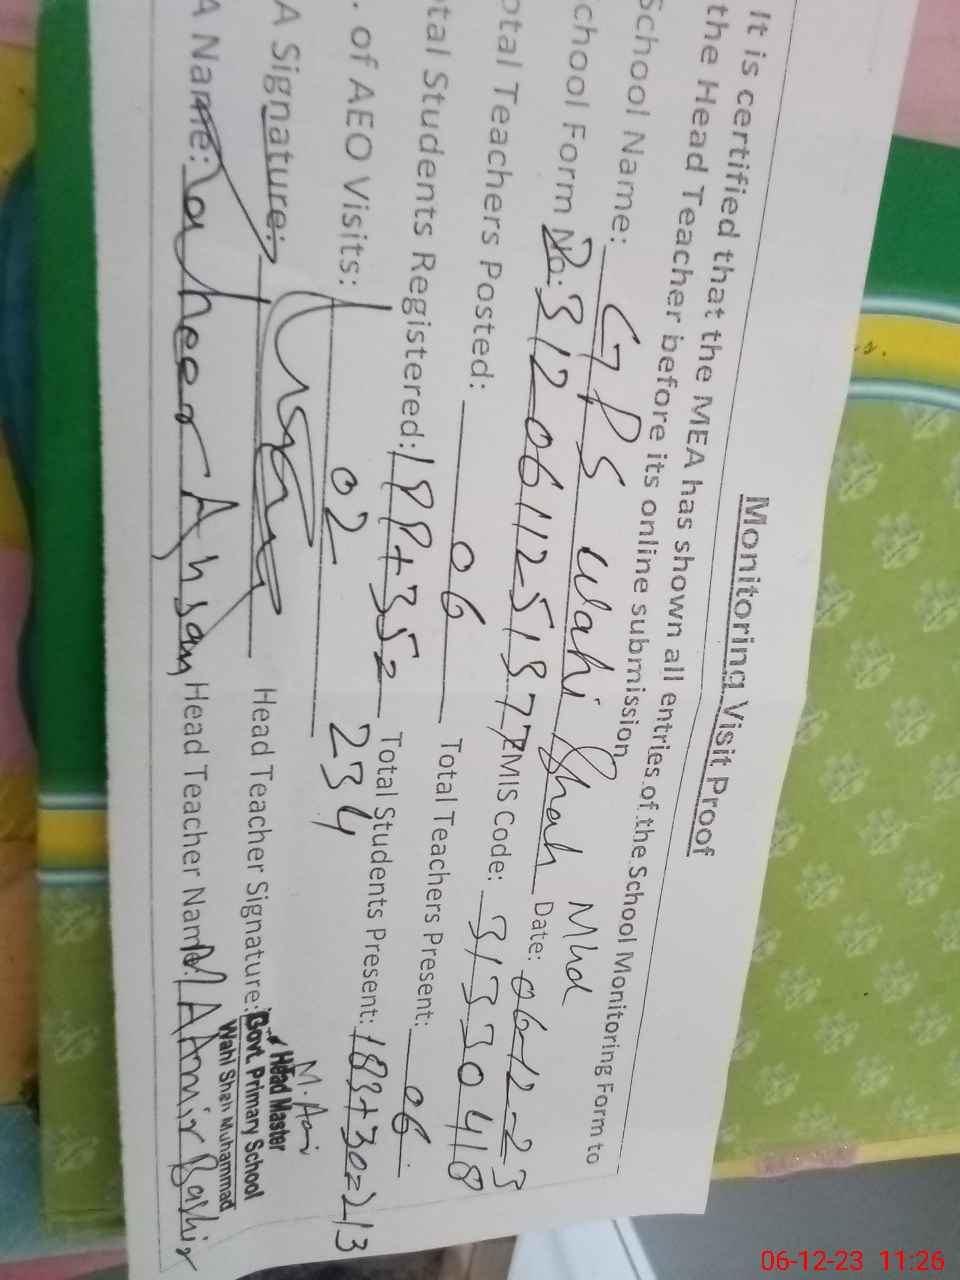 Monitoring Visit Proof
It is certified that the MEA has shown all entries of the School Monitoring Form to
the Head Teacher before its online submission.
School Name: GPS Wahi Shah Mhd Date: 06-12-23
chool Form No: 31206112519377 EMIS Code: 31330418
otal Teachers Posted: 06 Total Teachers Present: 06
otal Students Registered: 199+35= 234 Total Students Present: 183+30=213
. of AEO Visits: 02
A Signature: Head Teacher Signature: M.
Head Master
Govt. Primary School
Wahi Shah Muhammad
A Name: Taheer Ahsan Head Teacher Name: M Aamir Bashir
06-12-23 11:26